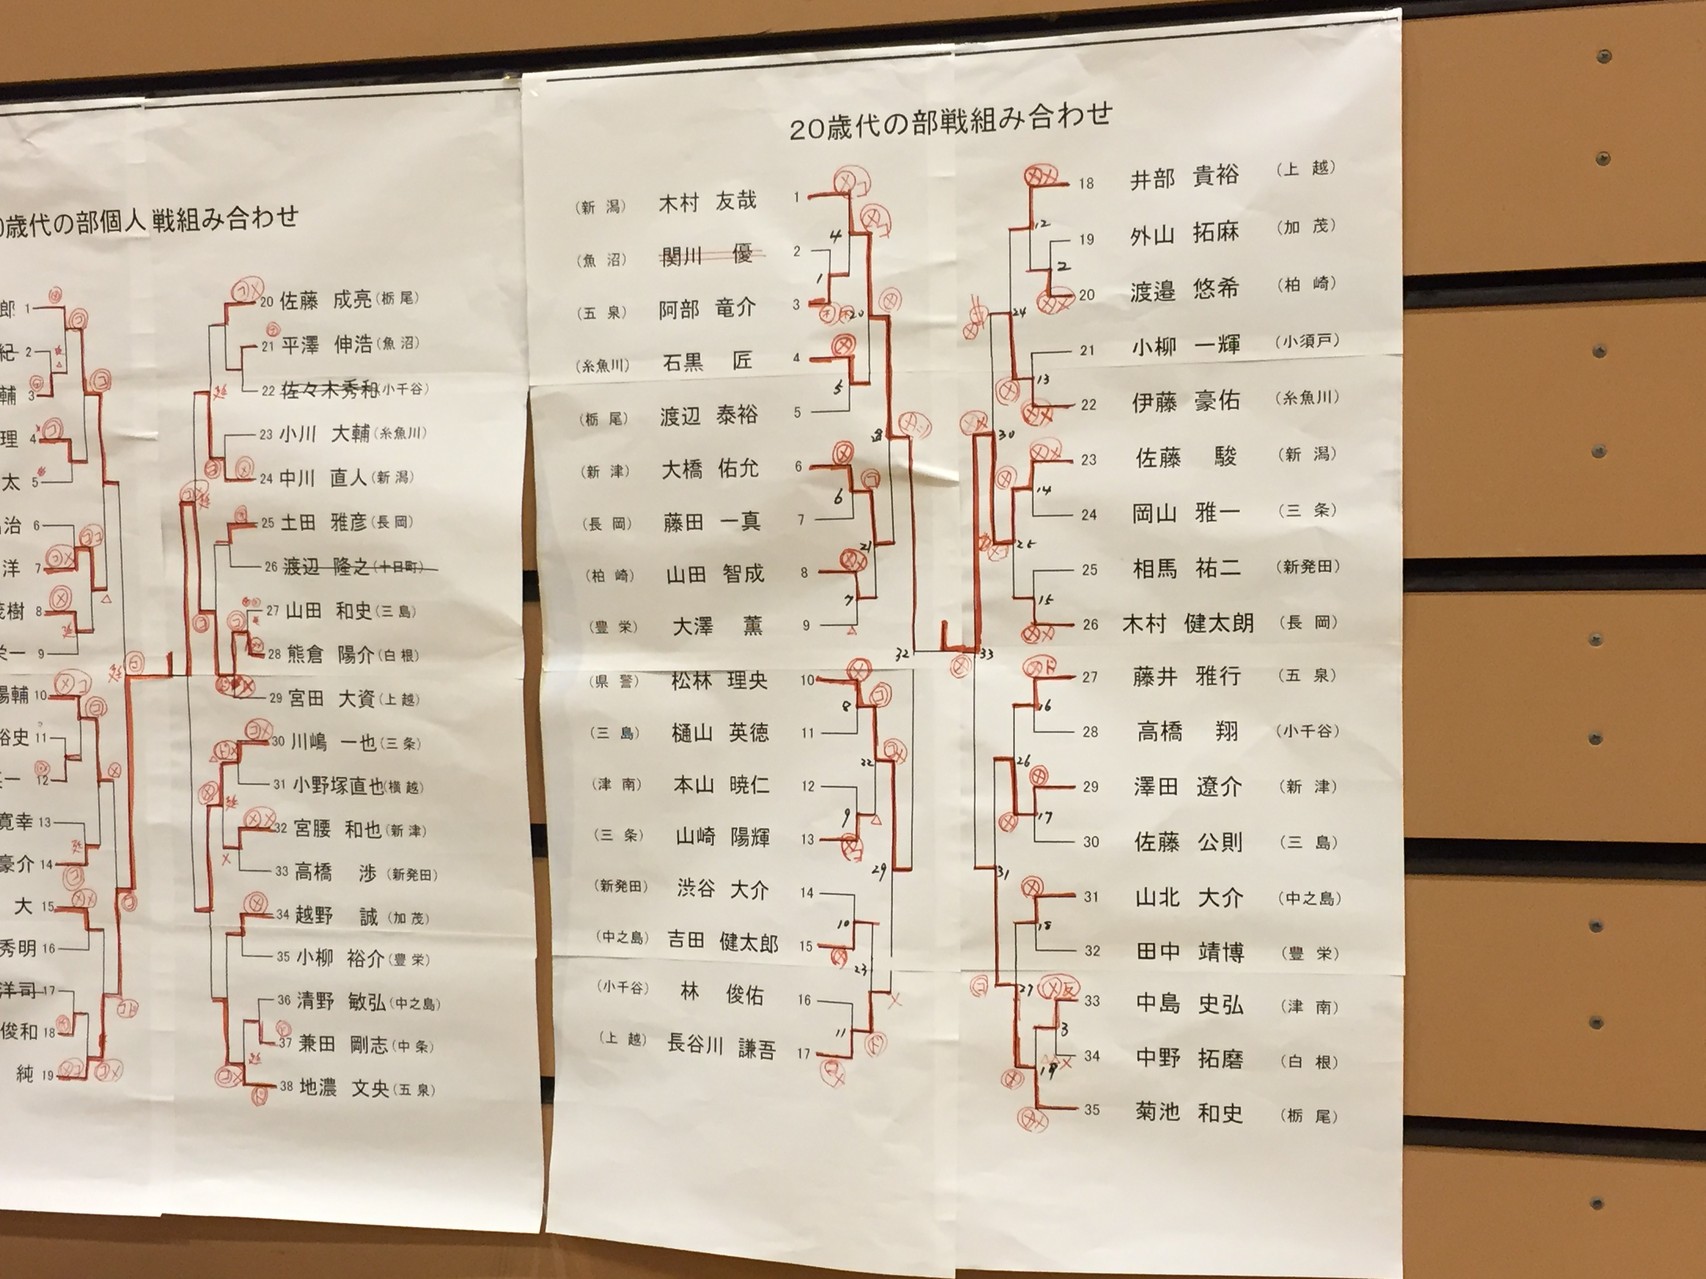 歳代の部個人戦組み合わせ
郎 1
紀 2
輔 3
理 4
太 5
治 6
洋 7
樹 8
一 9
陽輔 10
裕史 11
一 12
寛幸 13
豪介 14
大 15
秀明 16
洋司 17
俊和 18
純 19
20 佐藤 成亮(栃尾)
21 平澤 伸浩(魚沼)
22 佐々木秀和(小千谷)
23 小川 大輔(糸魚川)
24 中川 直人(新潟)
25 土田 雅彦(長岡)
26 渡辺 隆之(十日町)
27 山田 和史(三島)
28 熊倉 陽介(白根)
29 宮田 大資(上越)
30 川嶋 一也(三条)
31 小野塚直也(横越)
32 宮腰 和也(新津)
33 高橋 渉(新発田)
34 越野 誠(加茂)
35 小柳 裕介(豊栄)
36 清野 敏弘(中之島)
37 兼田 剛志(中条)
38 地濃 文央(五泉)
20歳代の部戦組み合わせ
(新潟) 木村 友哉 1
(魚沼) 関川 優 2
(五泉) 阿部 竜介 3
(糸魚川) 石黒 匠 4
(栃尾) 渡辺 泰裕 5
(新津) 大橋 佑允 6
(長岡) 藤田 一真 7
(柏崎) 山田 智成 8
(豊栄) 大澤 薫 9
(県警) 松林 理央 10
(三島) 樋山 英徳 11
(津南) 本山 暁仁 12
(三条) 山崎 陽輝 13
(新発田) 渋谷 大介 14
(中之島) 吉田 健太郎 15
(小千谷) 林 俊佑 16
(上越) 長谷川 謙吾 17
1
4
5
6
7
8
9
10
11
20
21
22
23
28
29
32
33
18 井部 貴裕 (上越)
19 外山 拓麻 (加茂)
20 渡邉 悠希 (柏崎)
21 小柳 一輝 (小須戸)
22 伊藤 豪佑 (糸魚川)
23 佐藤 駿 (新潟)
24 岡山 雅一 (三条)
25 相馬 祐二 (新発田)
26 木村 健太朗 (長岡)
27 藤井 雅行 (五泉)
28 高橋 翔 (小千谷)
29 澤田 遼介 (新津)
30 佐藤 公則 (三島)
31 山北 大介 (中之島)
32 田中 靖博 (豊栄)
33 中島 史弘 (津南)
34 中野 拓磨 (白根)
35 菊池 和史 (栃尾)
12
2
24
13
30
14
25
15
16
26
17
31
18
27
3
19